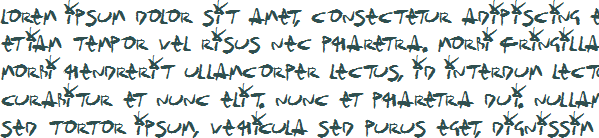 Lorem ipsum dolor sit amet, consectetur adipiscing e
etiam tempor vel risus nec pharetra. Morbi fringilla
morbi hendrerit ullamcorper lectus, id interdum lect
curabitur et nunc elit. Nunc et pharetra dui. Nullam
sed tortor ipsum, vehicula sed purus eget, dignissim